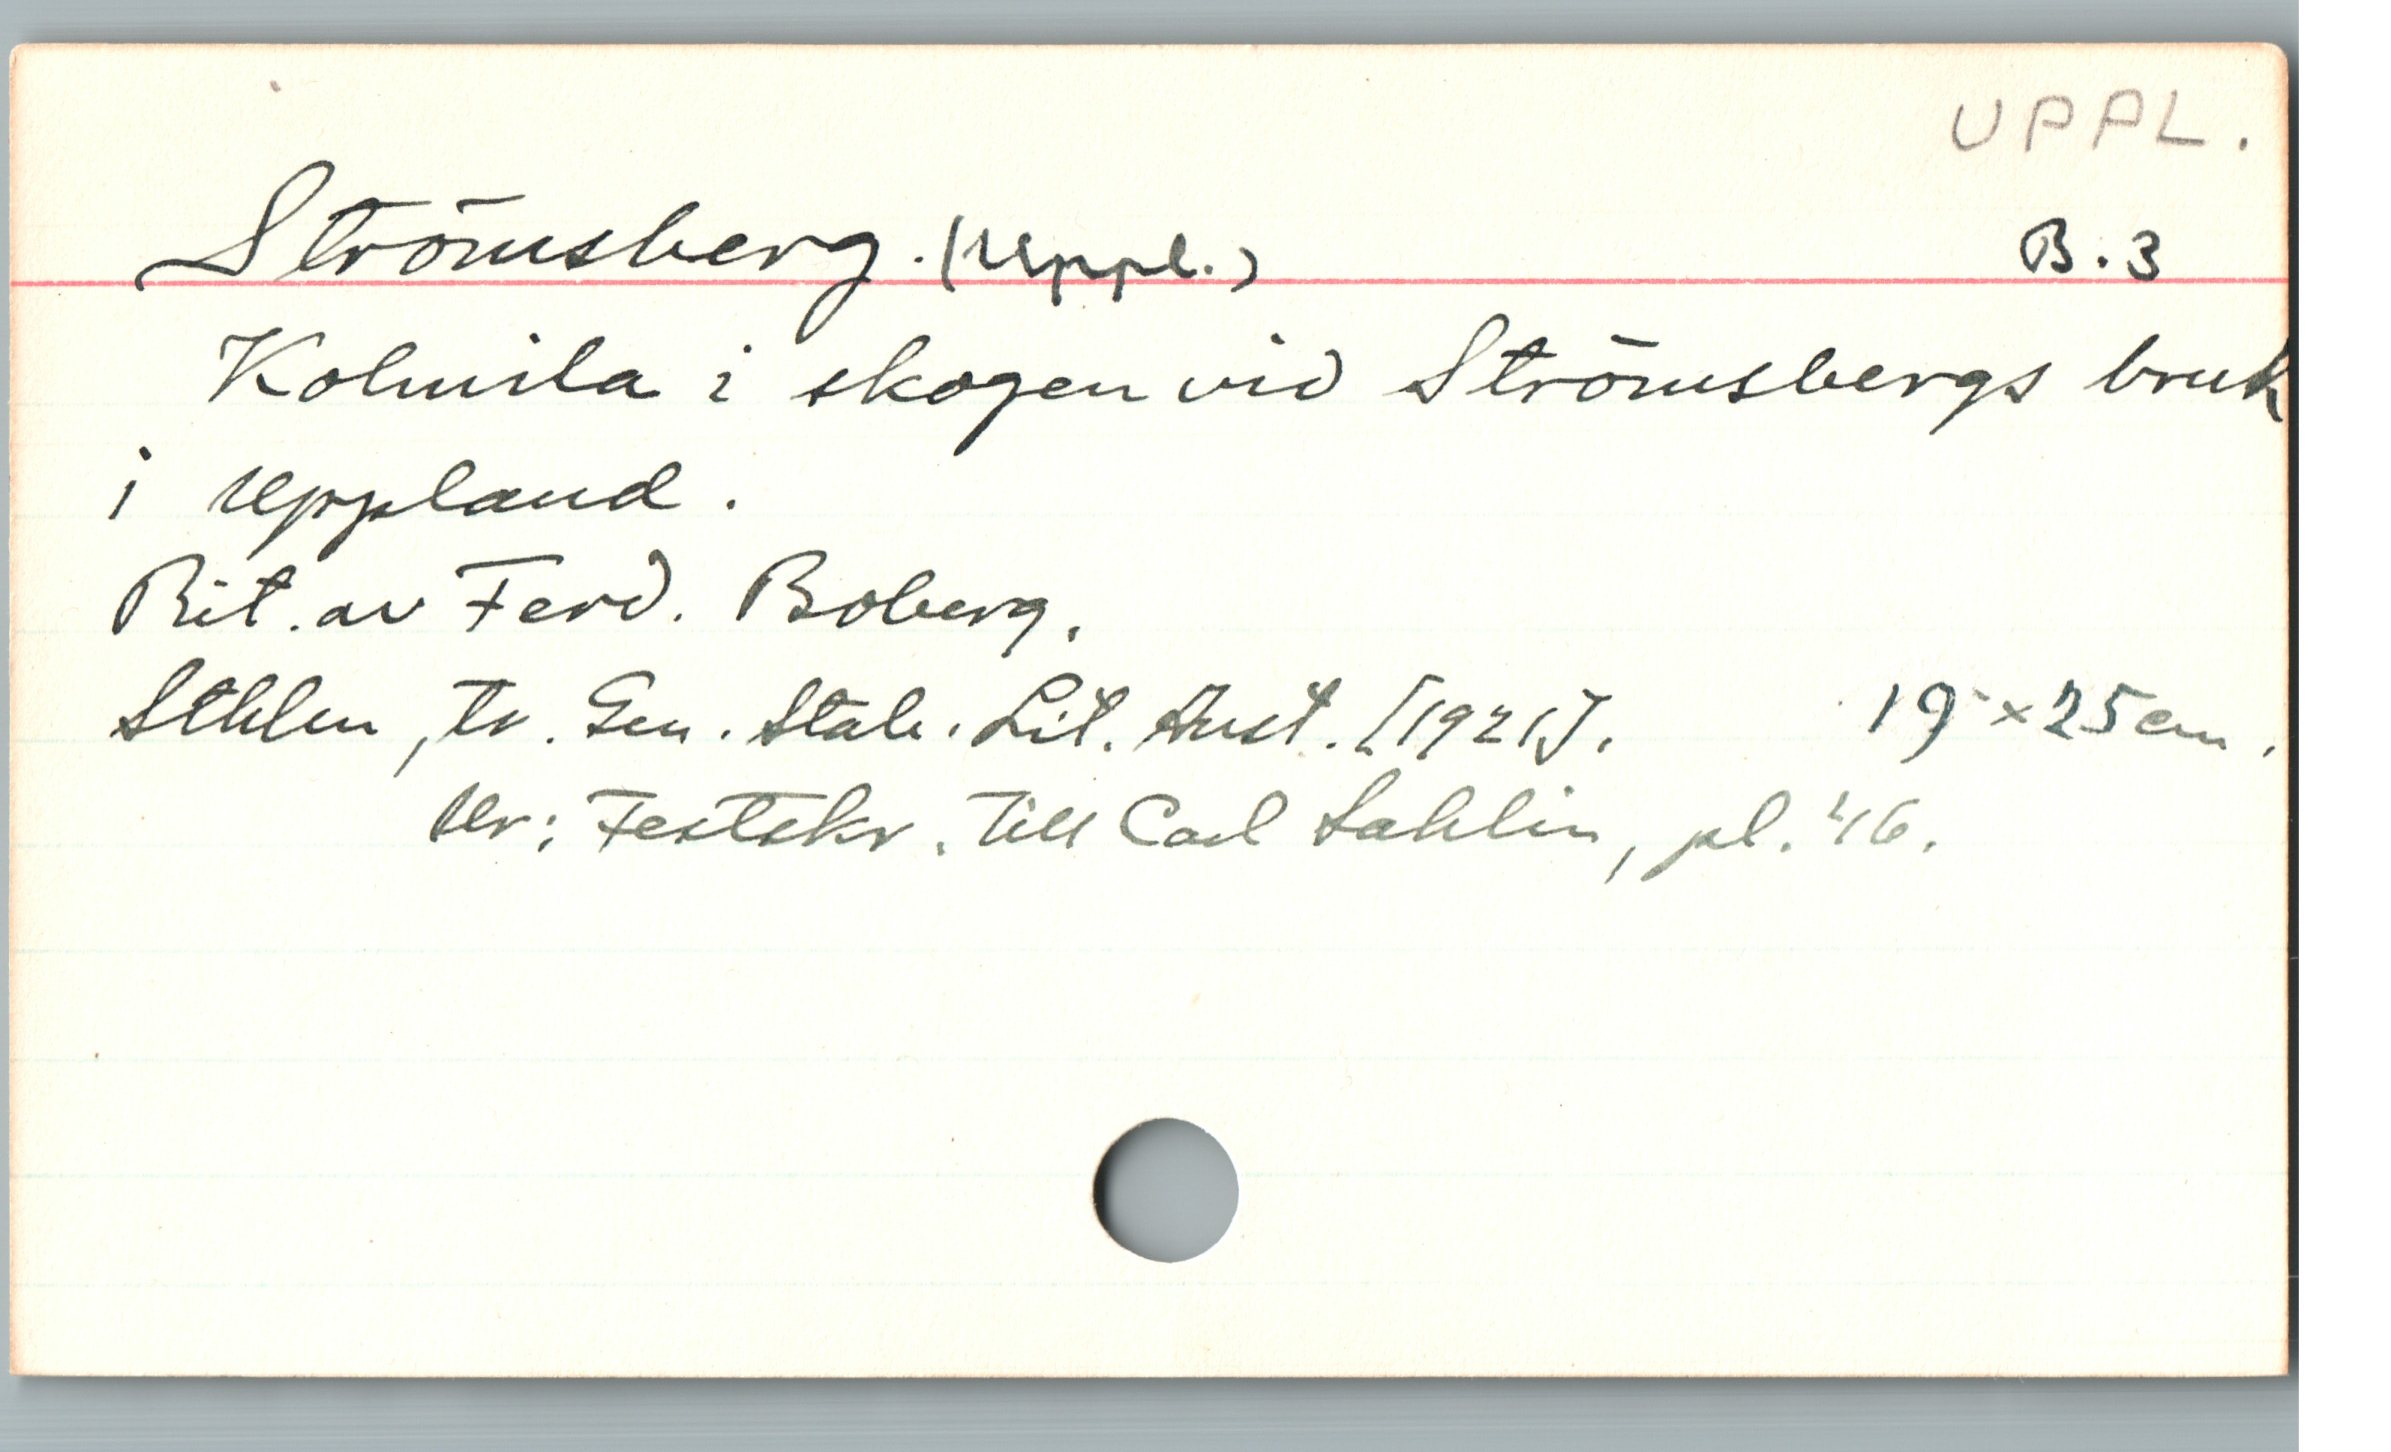 UPPL.
Strömsberg. (Uppl.) B.3
Kolmila i skogen vid Strömsbergs bruk
i Uppland.
Rit. av Ferd. Boberg.
Sthlm, tr. Gen. Stab. Lit. Anst. [1921]. 19 x 25 cm.
Ur: Festskr. till Carl Sahlin, pl. 46.